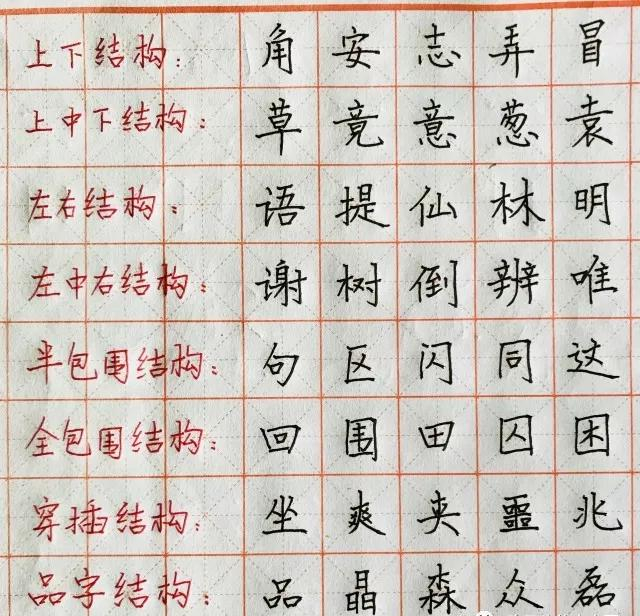 上下结构：角安志弄冒
上中下结构：草竟意葱袁
左右结构：语提仙林明
左中右结构：谢树倒辨唯
半包围结构：句区闪同这
全包围结构：回围田囚困
穿插结构：坐爽夹噩兆
品字结构：品晶森众磊